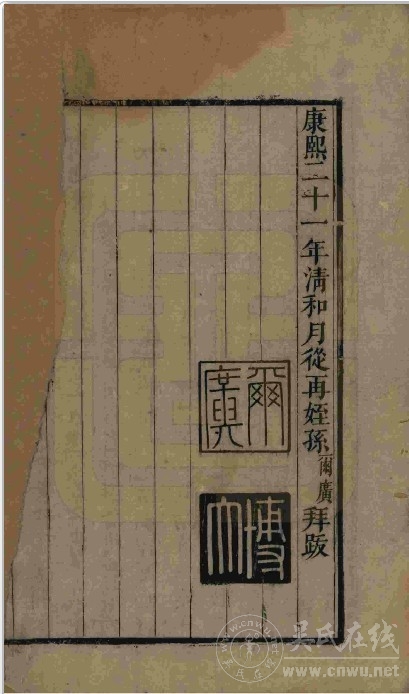 康熙二十一年清和月從再姪孫爾廣拜跋
爾廣
博大
吴氏在线
www.cnwu.net